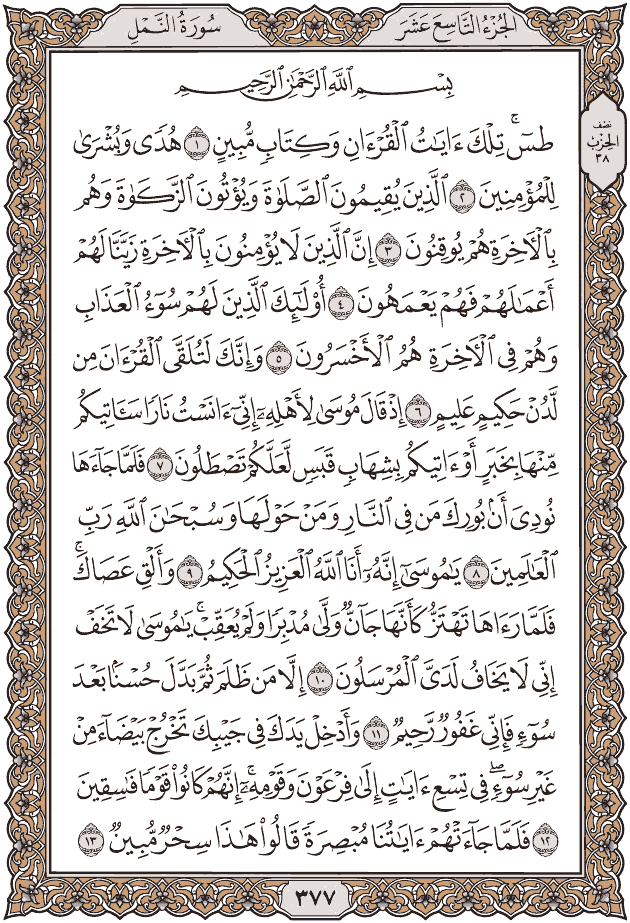 الجُزْءُ التَّاسِعَ عَشَرَ
سُورَةُ النَّمْلِ
بِسْمِ ٱللَّهِ ٱلرَّحْمَٰنِ ٱلرَّحِيمِ
نصف
الحزب
٣٨
طسٓۚ تِلْكَ ءَايَٰتُ ٱلْقُرْءَانِ وَكِتَابٖ مُّبِينٍ ١ هُدٗى وَبُشْرَىٰ
لِلْمُؤْمِنِينَ ٢ ٱلَّذِينَ يُقِيمُونَ ٱلصَّلَوٰةَ وَيُؤْتُونَ ٱلزَّكَوٰةَ وَهُم
بِٱلْأٓخِرَةِ هُمْ يُوقِنُونَ ٣ إِنَّ ٱلَّذِينَ لَا يُؤْمِنُونَ بِٱلْأٓخِرَةِ زَيَّنَّا لَهُمْ
أَعْمَٰلَهُمْ فَهُمْ يَعْمَهُونَ ٤ أُوْلَٰٓئِكَ ٱلَّذِينَ لَهُمْ سُوٓءُ ٱلْعَذَابِ
وَهُمْ فِي ٱلْأٓخِرَةِ هُمُ ٱلْأَخْسَرُونَ ٥ وَإِنَّكَ لَتُلَقَّى ٱلْقُرْءَانَ مِن
لَّدُنْ حَكِيمٍ عَلِيمٍ ٦ إِذْ قَالَ مُوسَىٰ لِأَهْلِهِۦٓ إِنِّيٓ ءَانَسْتُ نَارٗا سَـَٔاتِيكُم
مِّنْهَا بِخَبَرٍ أَوْ ءَاتِيكُم بِشِهَابٖ قَبَسٖ لَّعَلَّكُمْ تَصْطَلُونَ ٧ فَلَمَّا جَآءَهَا
نُودِيَ أَنۢ بُورِكَ مَن فِي ٱلنَّارِ وَمَنْ حَوْلَهَا وَسُبْحَٰنَ ٱللَّهِ رَبِّ
ٱلْعَٰلَمِينَ ٨ يَٰمُوسَىٰٓ إِنَّهُۥٓ أَنَا ٱللَّهُ ٱلْعَزِيزُ ٱلْحَكِيمُ ٩ وَأَلْقِ عَصَاكَۚ
فَلَمَّا رَءَاهَا تَهْتَزُّ كَأَنَّهَا جَآنّٞ وَلَّىٰ مُدْبِرٗا وَلَمْ يُعَقِّبْۚ يَٰمُوسَىٰ لَا تَخَفْ
إِنِّي لَا يَخَافُ لَدَيَّ ٱلْمُرْسَلُونَ ١٠ إِلَّا مَن ظَلَمَ ثُمَّ بَدَّلَ حُسْنَۢا بَعْدَ
سُوٓءٖ فَإِنِّي غَفُورٞ رَّحِيمٞ ١١ وَأَدْخِلْ يَدَكَ فِي جَيْبِكَ تَخْرُجْ بَيْضَآءَ مِنْ
غَيْرِ سُوٓءٖۖ فِي تِسْعِ ءَايَٰتٍ إِلَىٰ فِرْعَوْنَ وَقَوْمِهِۦٓۚ إِنَّهُمْ كَانُواْ قَوْمٗا فَٰسِقِينَ
١٢ فَلَمَّا جَآءَتْهُمْ ءَايَٰتُنَا مُبْصِرَةٗ قَالُواْ هَٰذَا سِحْرٞ مُّبِينٞ ١٣
٣٧٧